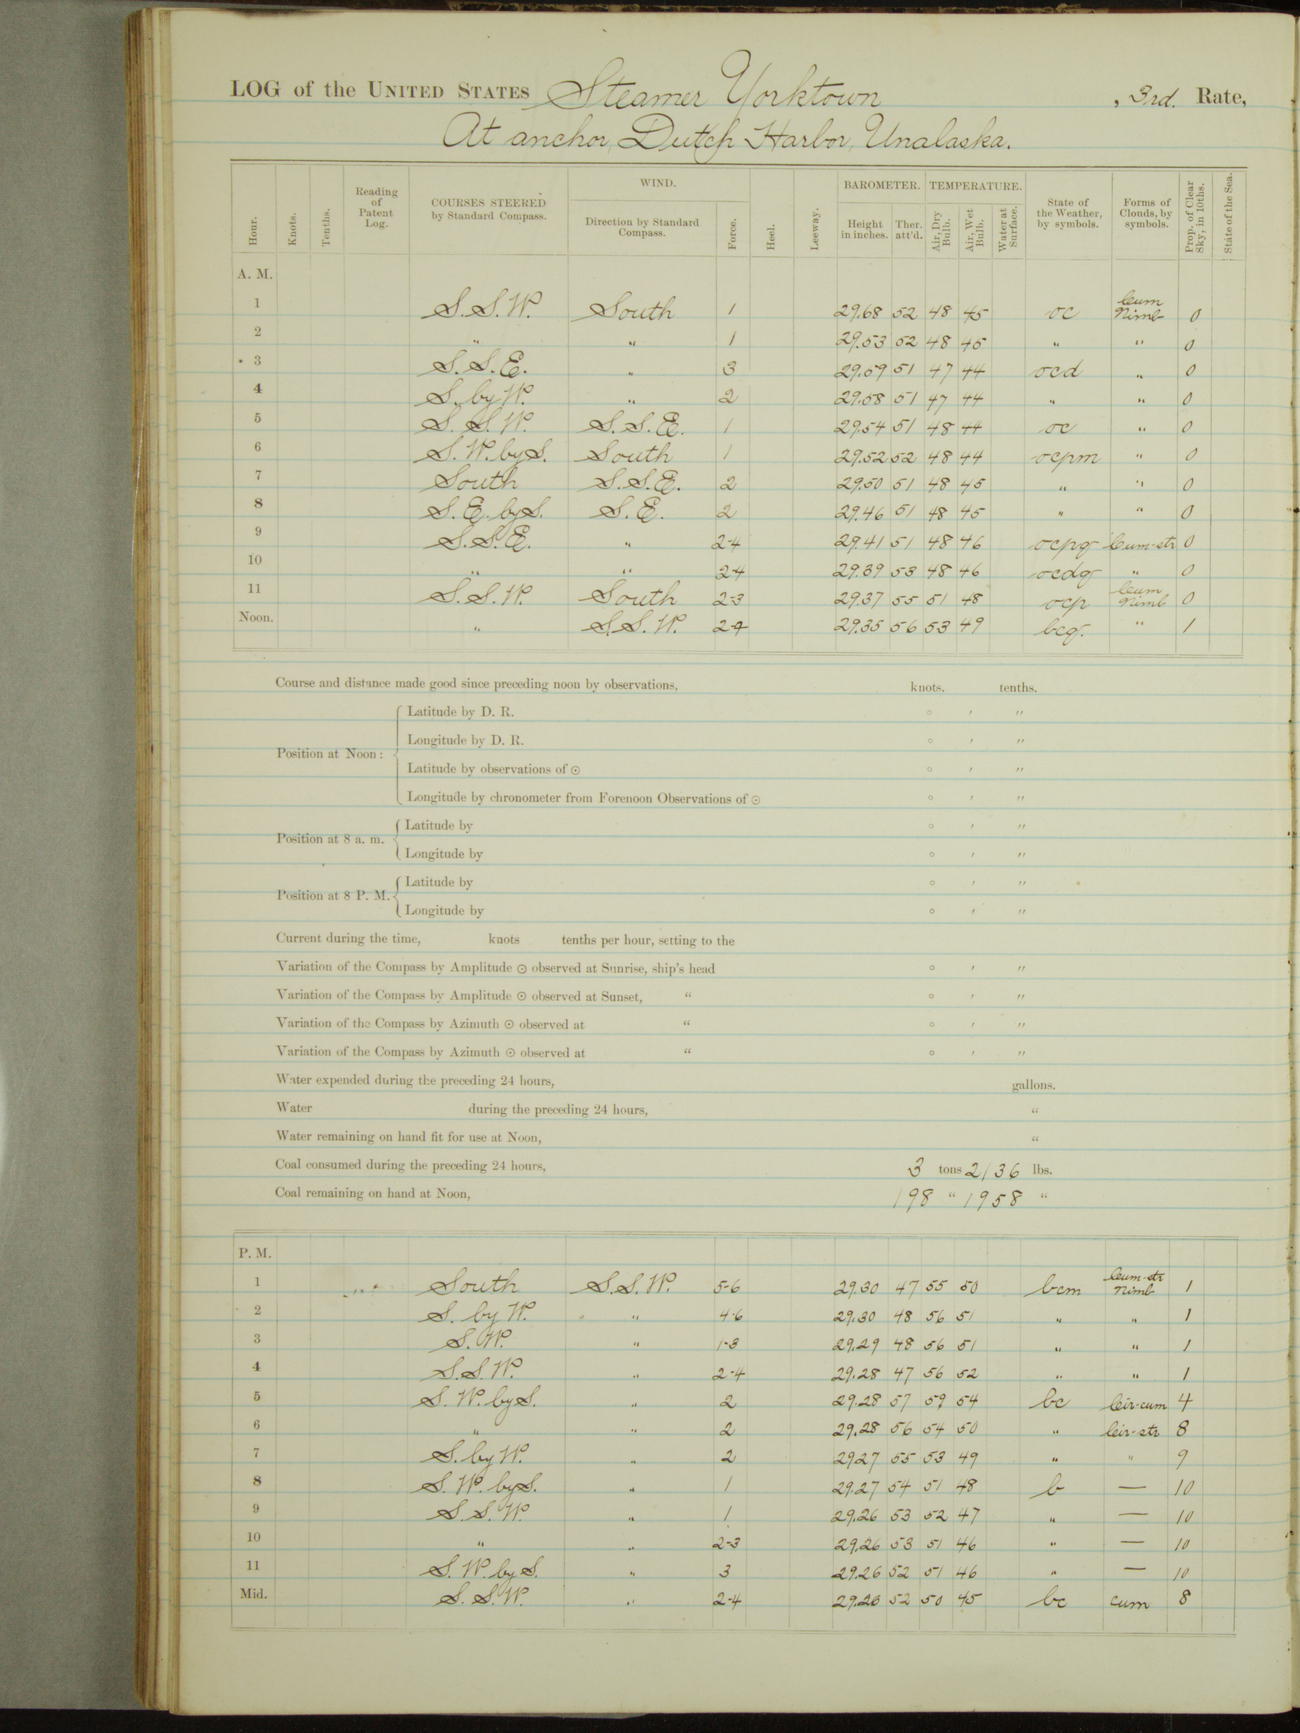 LOG of the UNITED STATES Steamer Yorktown, 3rd. Rate,
At anchor, Dutch Harbor, Unalaska.
Hour. Knots. Tenths. Reading of Patent Log. COURSES STEERED by Standard Compass. WIND. Direction by Standard Compass. Force. Heel. Leeway. BAROMETER. Height in inches. Ther. att'd. TEMPERATURE. Air, Dry Bulb. Air, Wet Bulb. Water at Surface. State of the Weather, by symbols. Forms of Clouds, by symbols. Prop. of Clear Sky, in 10ths. State of the Sea.
A. M.
1 S.S.W. South 1 29.68 52 48 45 oc Cum Nimb 0
2 " " 1 29.53 52 48 45 " " 0
3 S.S.E. " 3 29.59 51 47 44 ocd " 0
4 S. by W. " 2 29.58 51 47 44 " " 0
5 S.S.W. S.S.E. 1 29.54 51 48 44 oc " 0
6 S.W. by S. South 1 29.52 52 48 44 ocpm " 0
7 South S.S.E. 2 29.50 51 48 45 " " 0
8 S.E. by S. S.E. 2 29.46 51 48 45 " " 0
9 S.S.E. " 2-4 29.41 51 48 46 ocpq Cum-str 0
10 " " 2-4 29.39 53 48 46 ocdq " 0
11 S.S.W. South 2-3 29.37 55 51 48 ocp Cum Nimb 0
Noon. " S.S.W. 2-4 29.35 56 53 49 bcq. " 1
Course and distance made good since preceding noon by observations, knots. tenths.
Position at Noon: Latitude by D. R. ° ′ ″
Longitude by D. R. ° ′ ″
Latitude by observations of ☉ ° ′ ″
Longitude by chronometer from Forenoon Observations of ☉ ° ′ ″
Position at 8 a. m. Latitude by ° ′ ″
Longitude by ° ′ ″
Position at 8 P. M. Latitude by ° ′ ″
Longitude by ° ′ ″
Current during the time, knots tenths per hour, setting to the
Variation of the Compass by Amplitude ☉ observed at Sunrise, ship's head ° ′ ″
Variation of the Compass by Amplitude ☉ observed at Sunset, " ° ′ ″
Variation of the Compass by Azimuth ☉ observed at " ° ′ ″
Variation of the Compass by Azimuth ☉ observed at " ° ′ ″
Water expended during the preceding 24 hours, gallons.
Water during the preceding 24 hours, "
Water remaining on hand fit for use at Noon, "
Coal consumed during the preceding 24 hours, 3 tons 2136 lbs.
Coal remaining on hand at Noon, 198 " 1958 "
P. M.
1 South S.S.W. 5-6 29.30 47 55 50 bcm Cum-str Nimb 1
2 S. by W. " 4-6 29.30 48 56 51 " " 1
3 S.W. " 1-3 29.29 48 56 51 " " 1
4 S.S.W. " 2-4 29.28 47 56 52 " " 1
5 S.W. by S. " 2 29.28 57 59 54 bc Cir-cum 4
6 " " 2 29.28 56 54 50 " Cir-str 8
7 S. by W. " 2 29.27 55 53 49 " " 9
8 S.W. by S. " 1 29.27 54 51 48 b — 10
9 S.S.W. " 1 29.26 53 52 47 " — 10
10 " " 2-3 29.26 53 51 46 " — 10
11 S.W. by S. " 3 29.26 52 51 46 " — 10
Mid. S.S.W. " 2-4 29.26 52 50 45 bc cum 8